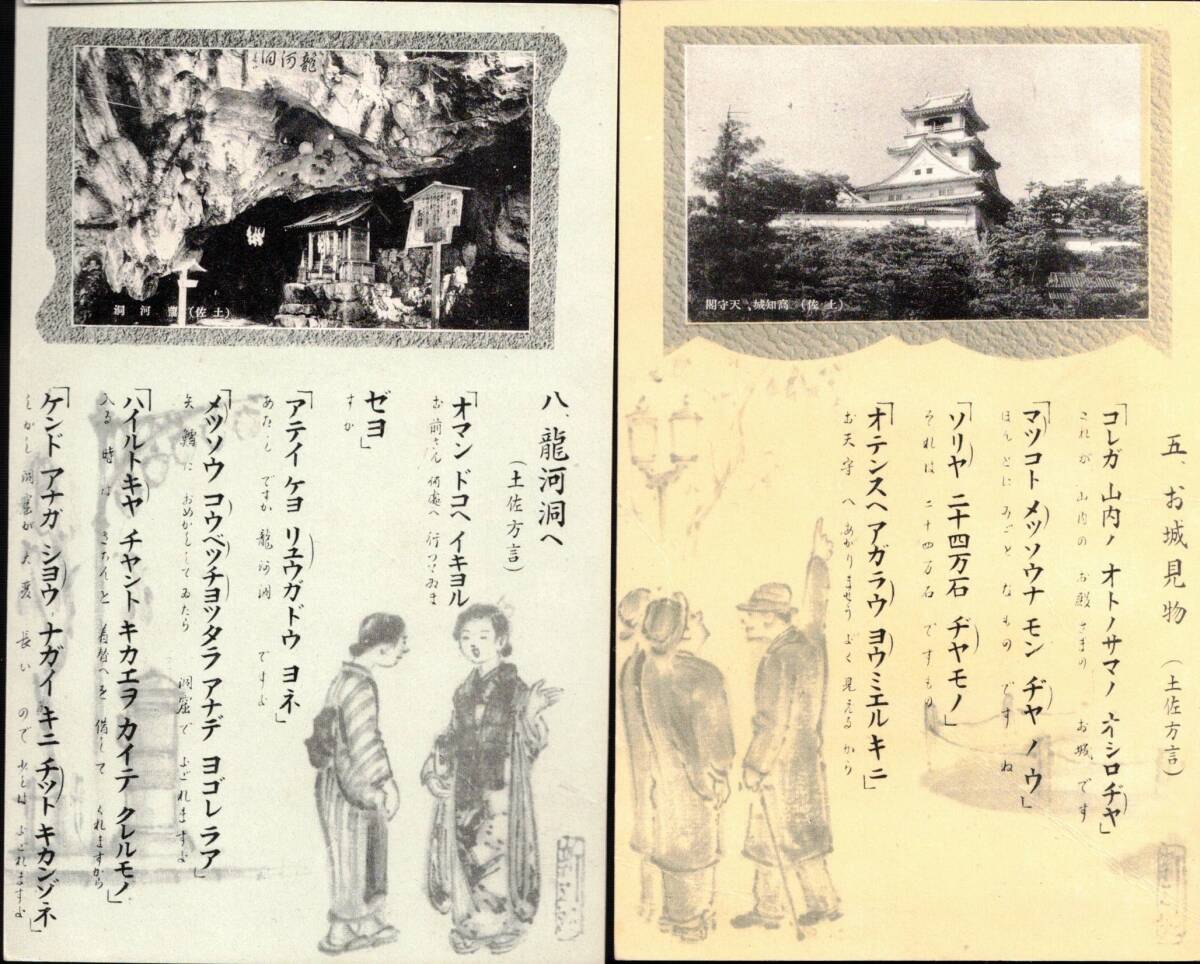 龍河洞
(土佐) 龍河洞
八、龍河洞へ
(土佐方言)
「オマン ドコヘ イキヨル
お前さん 何處へ 行つてゐま
ゼヨ」
すか
「アテイ ケヨ リュウガドウ ヨネ」
あたし ですか 龍河洞 ですよ
「メツソウ コウベッチョツタラ アナデ ヨゴレラア」
おめかしして ゐたら 洞窟で よごれますよ
「ハイルトキャ チャント キカエヲ カイテ クレルモノ」
入る 時は きちんと 着替へを 借して くれますから
「ケンド アナガ ショウ ナガイ キニ チット キカンゾネ」
しかし 洞窟が 大変 長い ので 少しは よごれますよ
(土佐) 高知城、天守閣
五、お城見物
(土佐方言)
「コレガ 山内ノ オトノサマノ オシロヂャ」
これが 山内の お殿さまの お城 です
「マツコト メッソウナ モン ヂャ ノウ」
ほんとに みごと なもの です ね
「ソリヤ 二十四万石 ヂャモノ」
それは 二十四万石 ですもの
「オテンスヘ アガラウ ヨウミエル キニ」
お天守 へ あがりませう よく 見える から